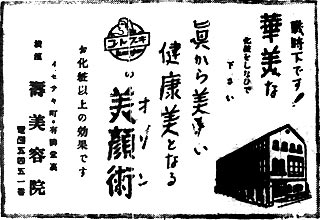 戦時下です!
華美な
化粧をしないで
下さい
真から美しい
健康美となる
オゾン
の美顔術
お化粧以上の効果です
イセザキ町・有隣堂裏
横浜
壽美容院
電話五四五一番